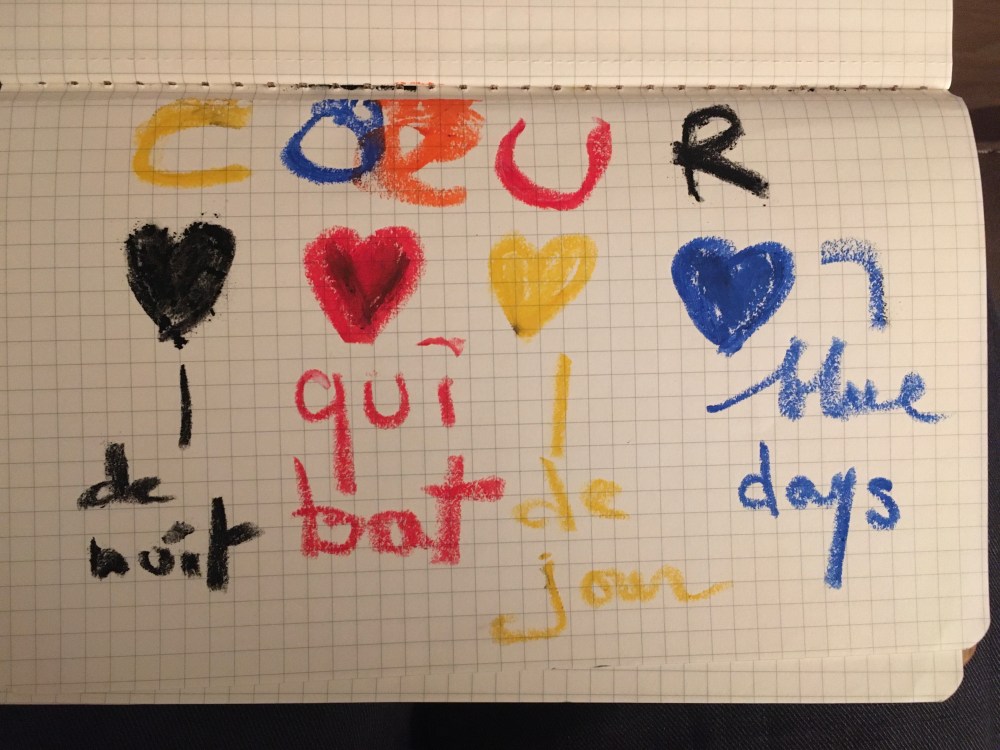 CŒUR
de
nuit
qui
bat
de
jour
blue
days